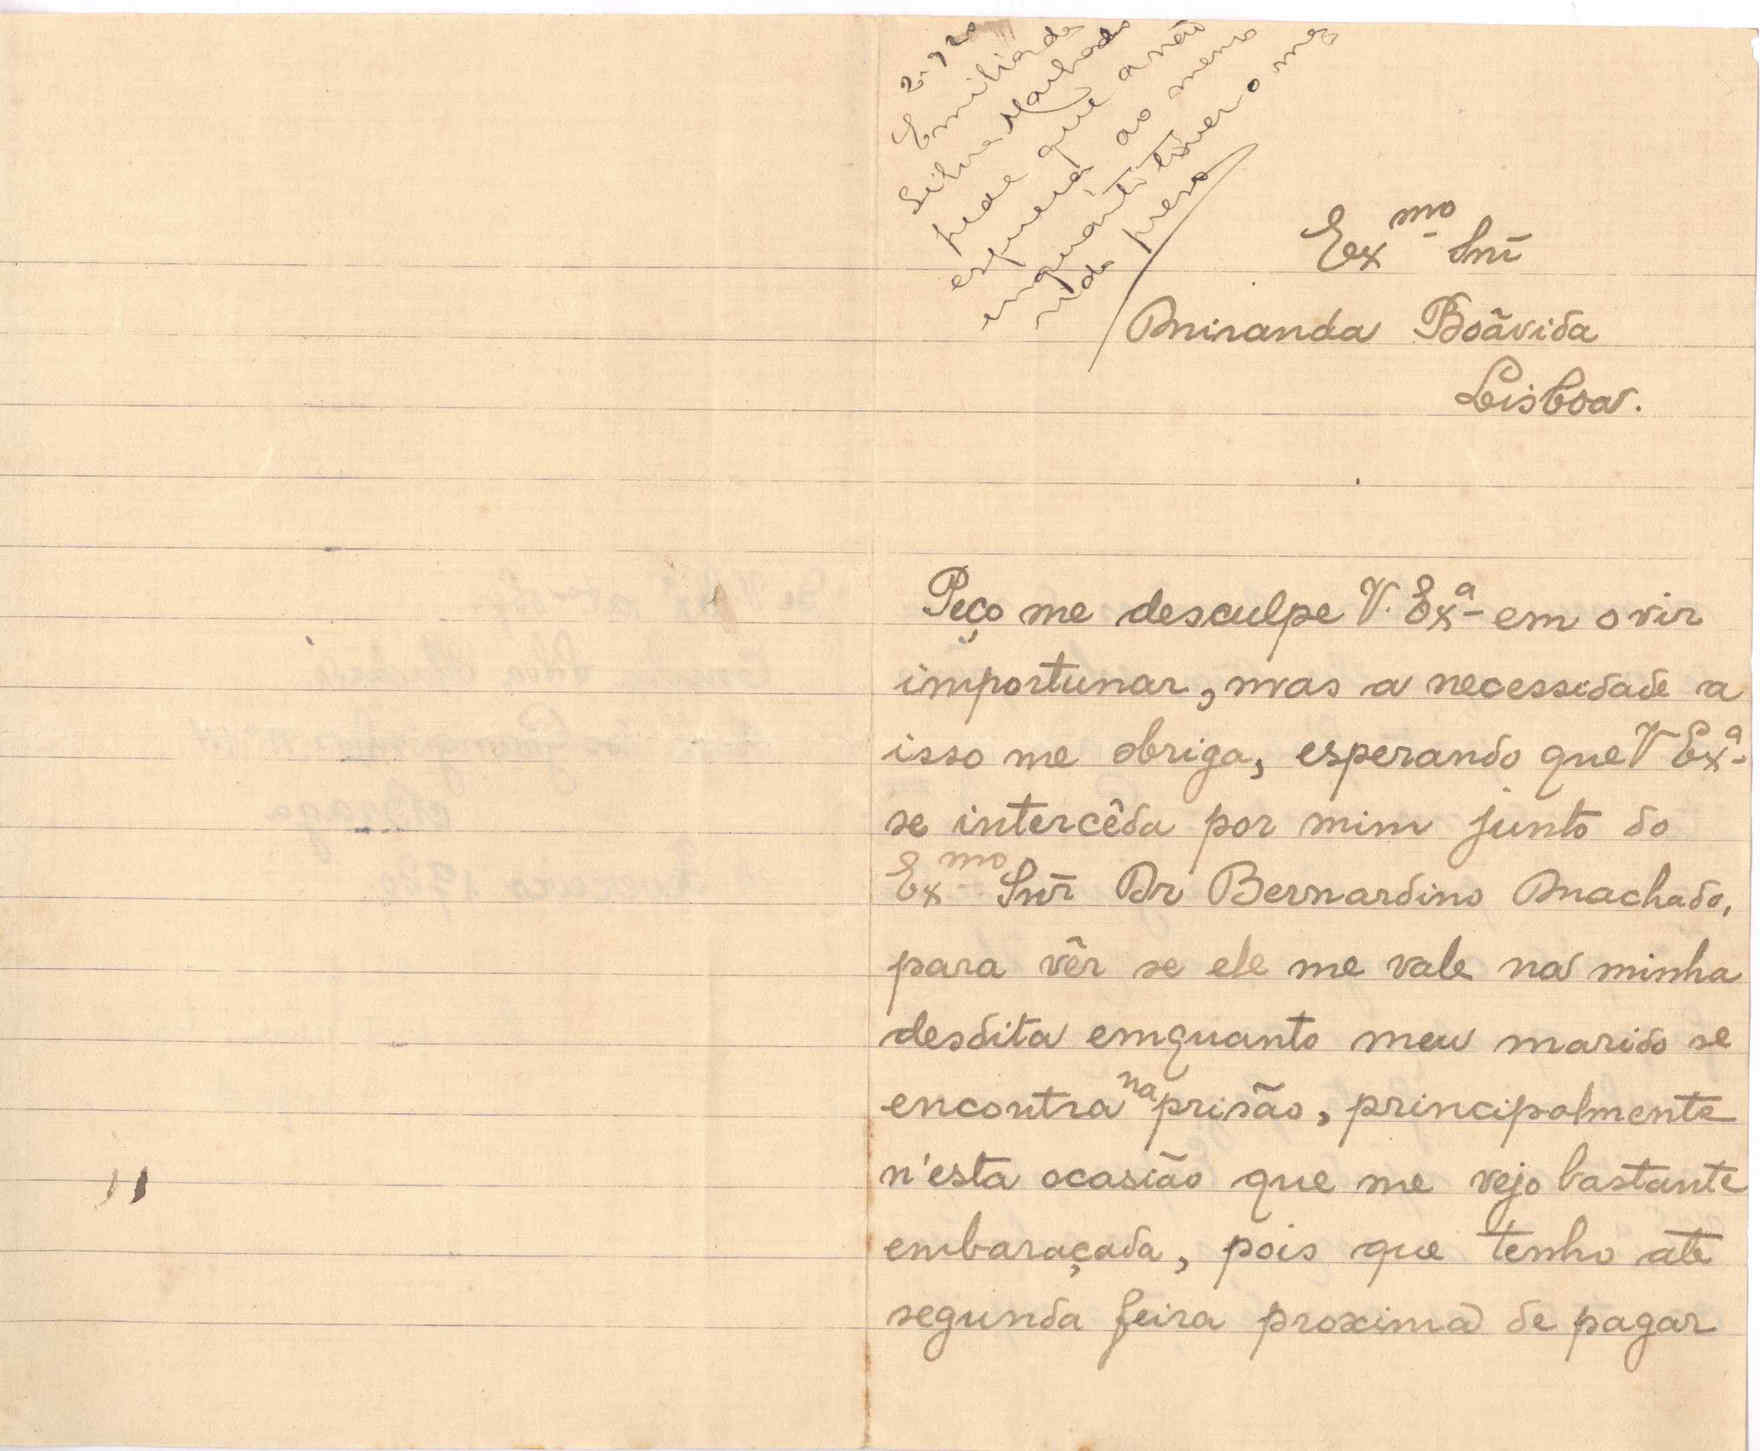 2-920
Emilia da
Silva Machado
pede que a não
esqueça ao menos
enquanto tiver o ma
rido preso
Ex.mo Snr
Miranda Boãvida
Lisboa.
Peço me desculpe V. Ex.a em o vir
importunar, mas a necessidade a
isso me obriga, esperando que V Ex.a
se intercêda por mim junto do
Ex.mo Snr Dr Bernardino Machado,
para vêr se ele me vale na minha
desdita emquanto meu marido se
encontra na prisão, principalmente
n'esta ocasião que me vejo bastante
embaraçada, pois que tenho até
segunda feira proxima de pagar